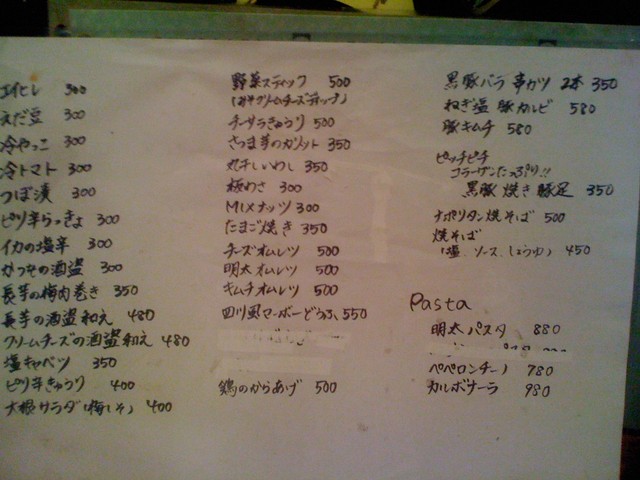 エイヒレ 300
えだ豆 300
冷やっこ 300
冷トマト 300
つぼ漬 300
ピリ辛らっきょ 300
イカの塩辛 300
かつおの酒盗 300
長芋の梅肉巻き 350
長芋の酒盗和え 480
クリームチーズの酒盗和え 480
塩キャベツ 350
ピリ辛きゅうり 400
大根サラダ(梅しそ) 400
野菜スティック 500
(みそクリームチーズディップ)
チーサラきゅうり 500
さつま芋のガレット 350
丸干しいわし 350
板わさ 300
MIXナッツ 300
たまご焼き 350
チーズオムレツ 500
明太オムレツ 500
キムチオムレツ 500
四川風マーボーどうふ 550
鶏のからあげ 500
黒豚バラ串カツ 2本 350
ねぎ塩豚カルビ 580
豚キムチ 580
ピッチピチ
コラーゲンたっぷり!!
黒豚焼き豚足 350
ナポリタン焼そば 500
焼そば
(塩、ソース、しょうゆ) 450
Pasta
明太パスタ 880
ペペロンチーノ 780
カルボナーラ 980